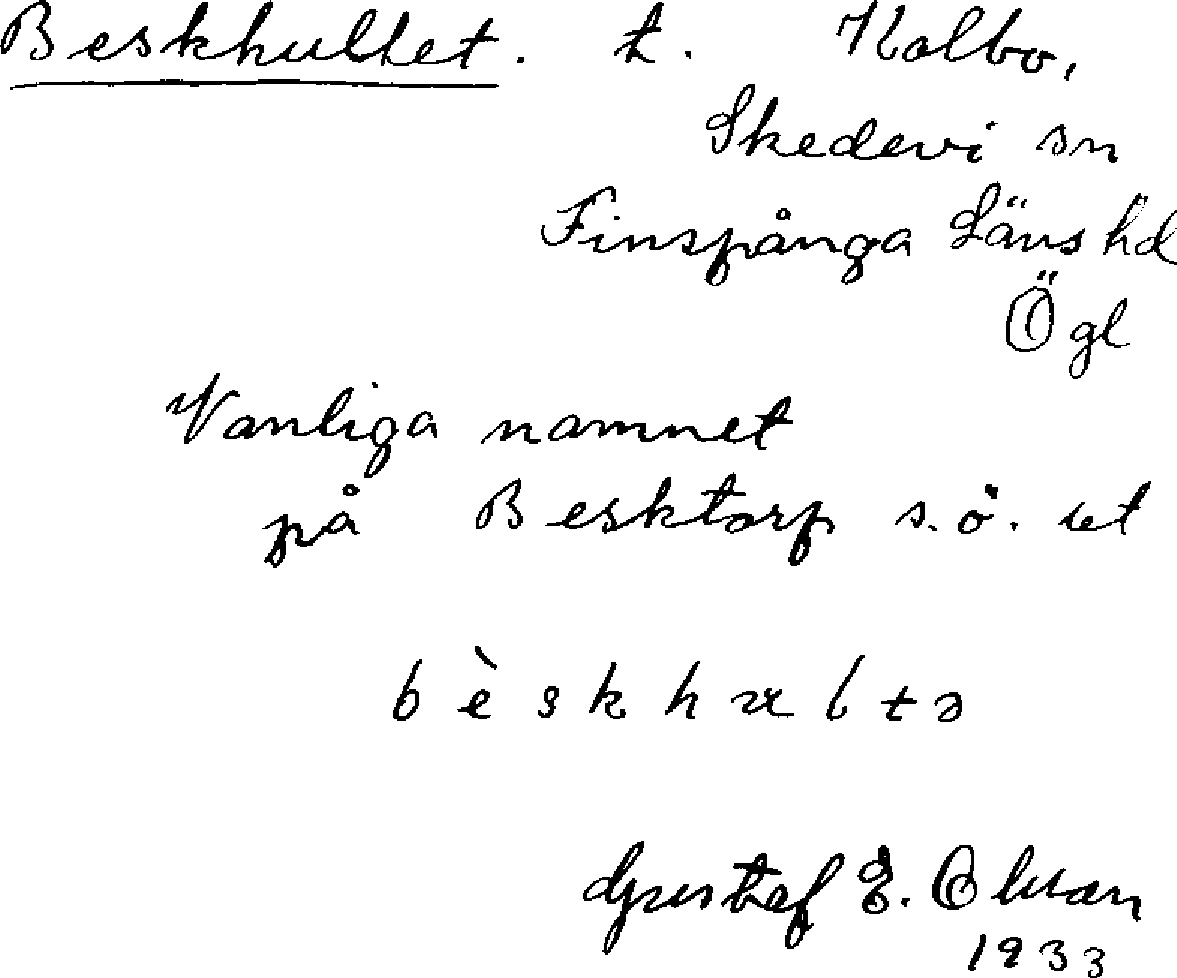 Beskhultet. t. Kolbo,
Skedevi sn
Finspånga Läns hd
Ögl
Vanliga namnet
på Besktorp s.ö. ut
bèskhultə
Gustaf E. Olsson
1933